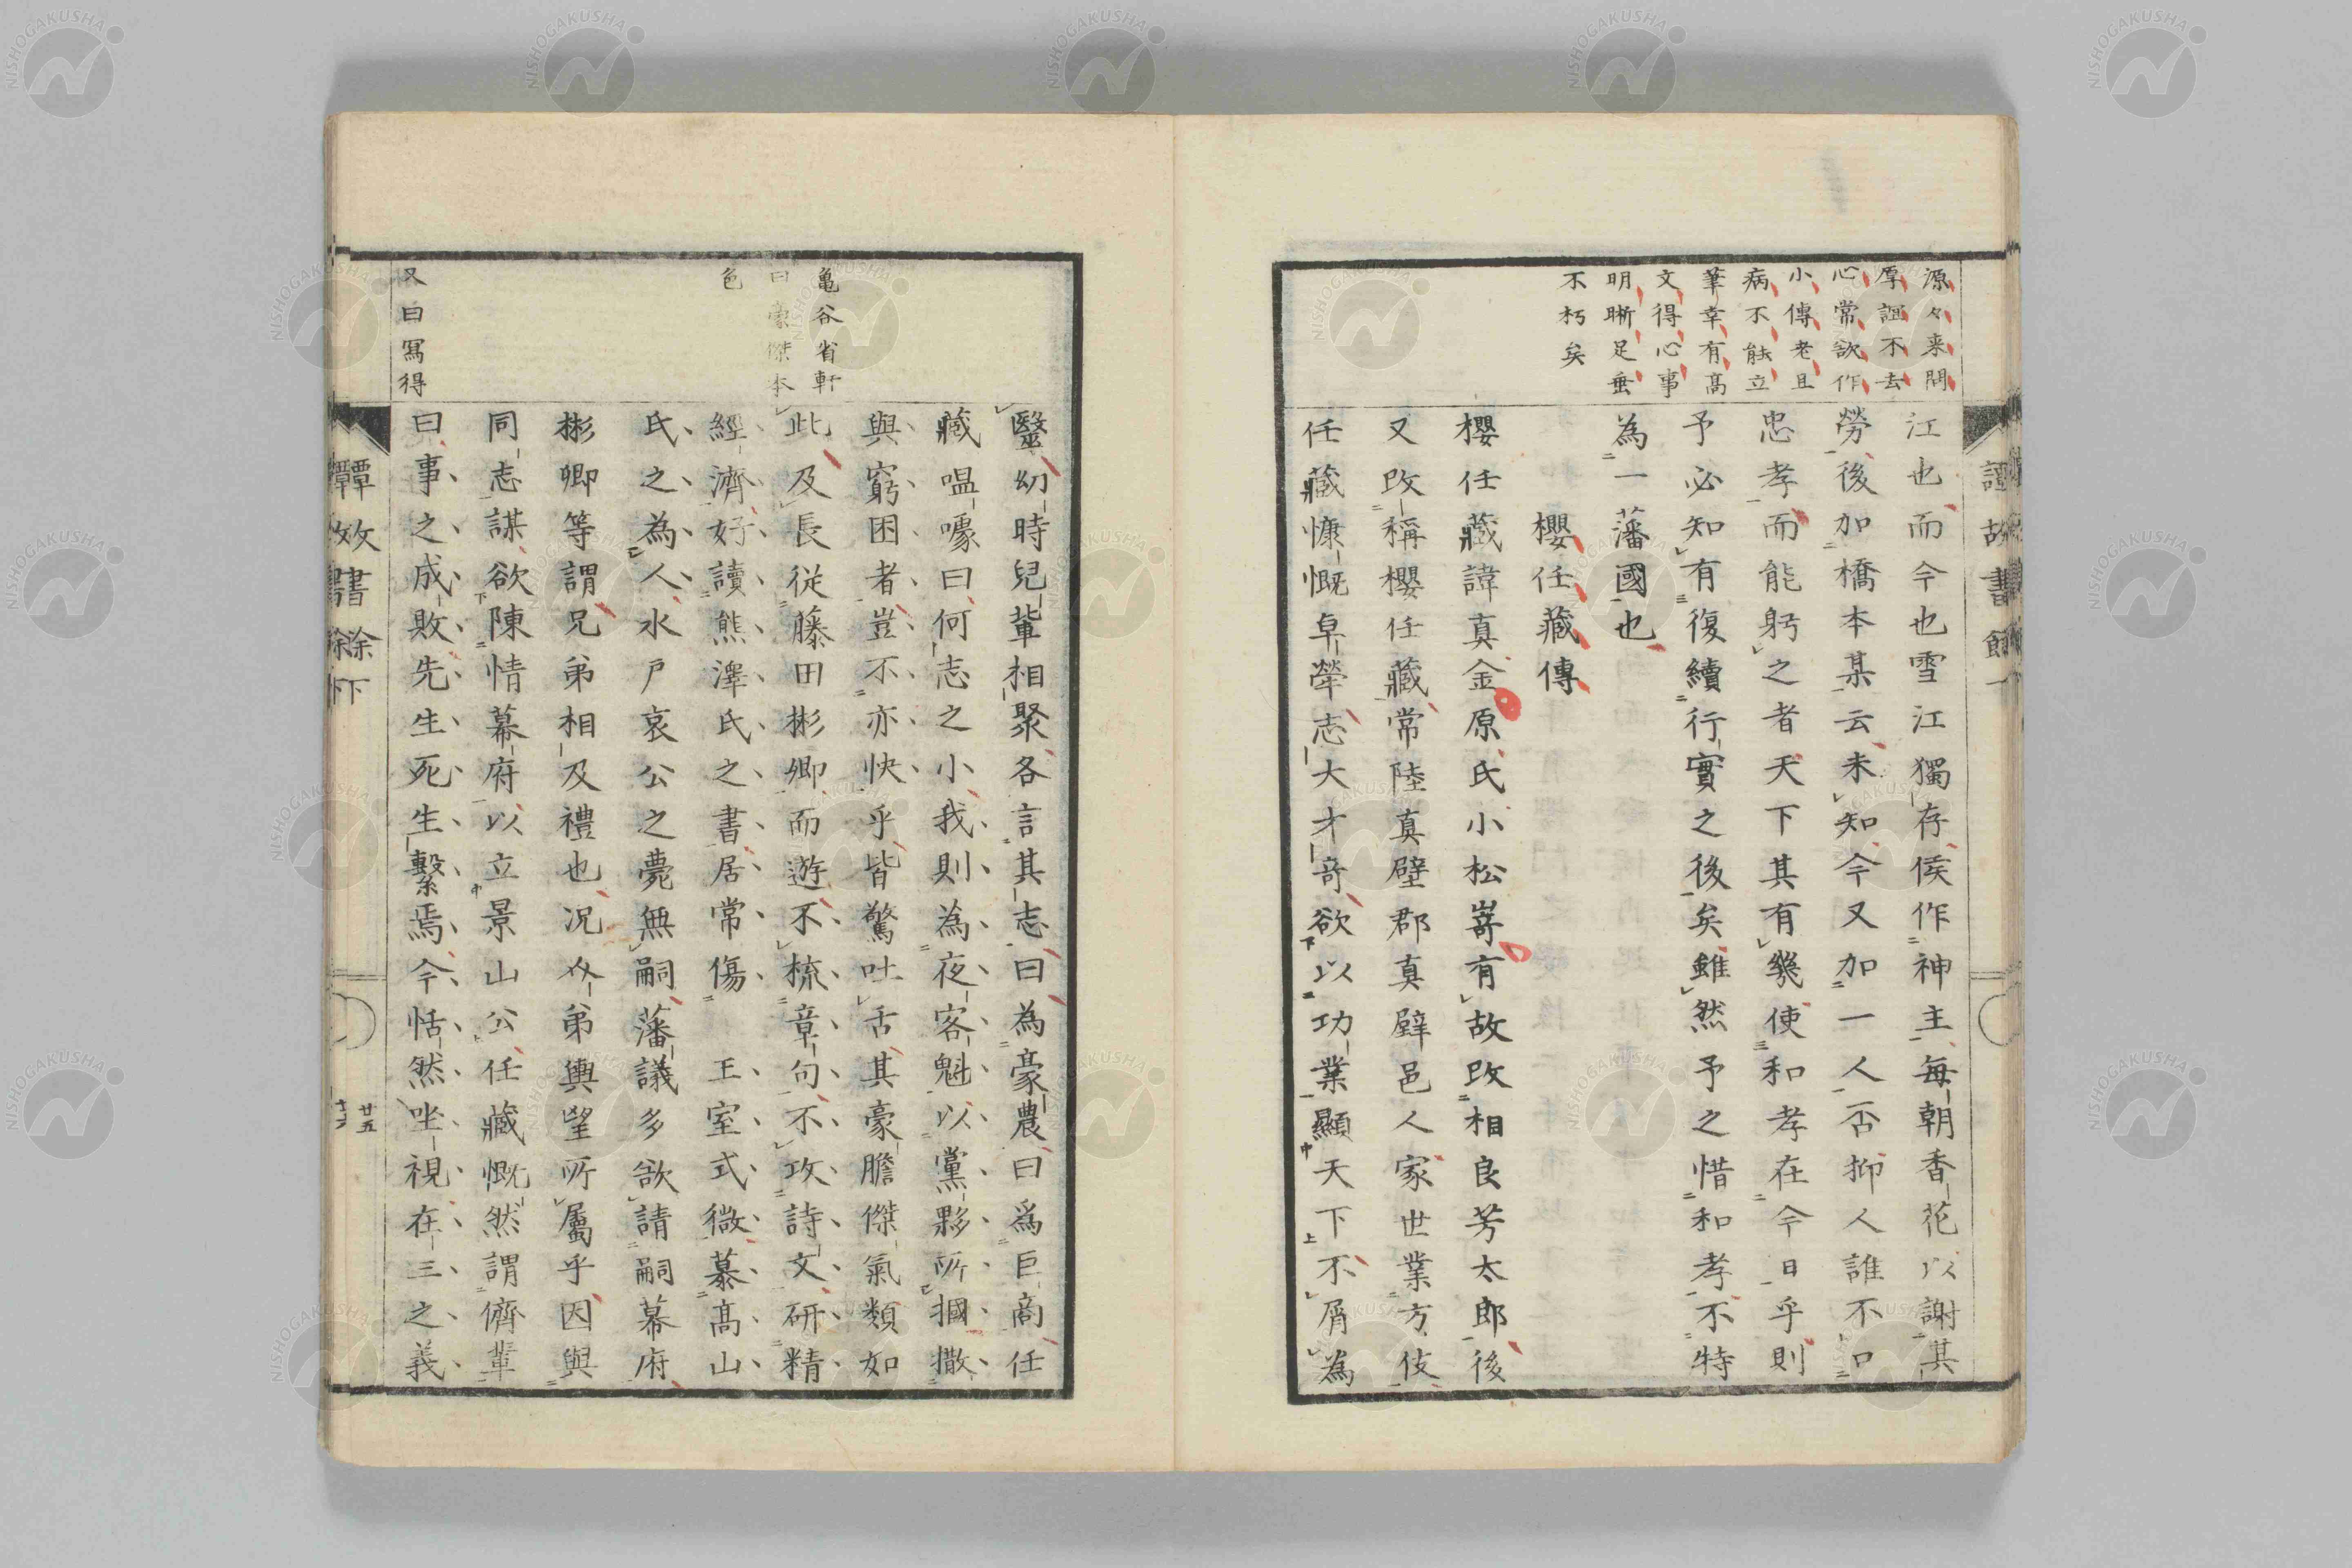 源々来問
厚誼不去
心常欲作
小傳老且
病不能立
筆幸有髙
文得心事
明晰足垂
不朽矣
江也而今也雪江獨存侯作神主每朝香花以謝其
勞後加橋本某云未知今又加一人否抑人誰不口
忠孝而能躬之者天下其有幾使和孝在今日乎則
予必知有復續行實之後矣雖然予之惜和孝不特
為一藩國也
櫻任藏傳
櫻任藏諱真金原氏小松嵜有故改相良芳太郎後
又改稱櫻任藏常陸真壁郡真壁邑人家世業方伎
任藏慷慨卓犖志大才竒欲以功業顯天下不屑為
醫幼時兒輩相聚各言其志曰為豪農曰爲巨商任
藏嗢噱曰何志之小我則為夜客魁以黨夥所摑撒
與窮困者豈不亦快乎皆驚吐舌其豪膽傑氣類如
此及長從藤田彬卿而遊不梳章句不攻詩文研精
經濟好讀熊澤氏之書居常傷 王室式微慕髙山
氏之為人水戶哀公之薨無嗣藩議多欲請嗣幕府
彬卿等謂兄弟相及禮也况介弟輿望所屬乎因與
同志謀欲陳情幕府以立景山公任藏慨然謂儕輩
曰事之成敗先生死生繫焉今恬然坐視在三之義
亀谷省軒
曰豪傑本
色
又曰冩得
譚故書餘下
廿五
NISHOGAKUSHA